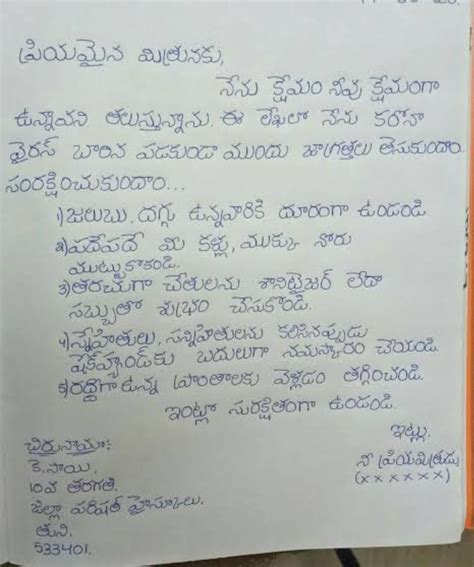 ప్రియమైన మిత్రునకు,
నేను క్షేమం నీవు క్షేమంగా
ఉన్నావని తలుస్తున్నాను. ఈ లేఖలో నేను కరోనా
వైరస్ బారిన పడకుండా ముందు జాగ్రత్తలు తెసుకుందాం
సంరక్షించుకుందాం...
1) జలుబు, దగ్గు ఉన్నవారికి దూరంగా ఉండండి
2) పదేపదే మి కళ్లు, ముక్కు నోరు
ముట్టుకొకండి.
3) తరచుగా చేతులను శానిటైజర్ లేదా
సబ్బుతో శుభ్రం చేసుకొండి.
4) స్నేహితులు, సన్నిహితులను కలిసినప్పుడు
షేక్‌హ్యాండ్‌కు బదులుగా నమస్కారం చేయండి
5) రద్దీగా ఉన్న ప్రాంతాలకు వెళ్లడం తగ్గించండి.
ఇంట్లో సురక్షితంగా ఉండండి.
ఇట్లు,
నీ ప్రియమిత్రుడు
(x x x x x x)
చిరునామా:
కె.సాయి,
10వ తరగతి,
జిల్లా పరిషత్ హైస్కూలు,
తుని,
533401.